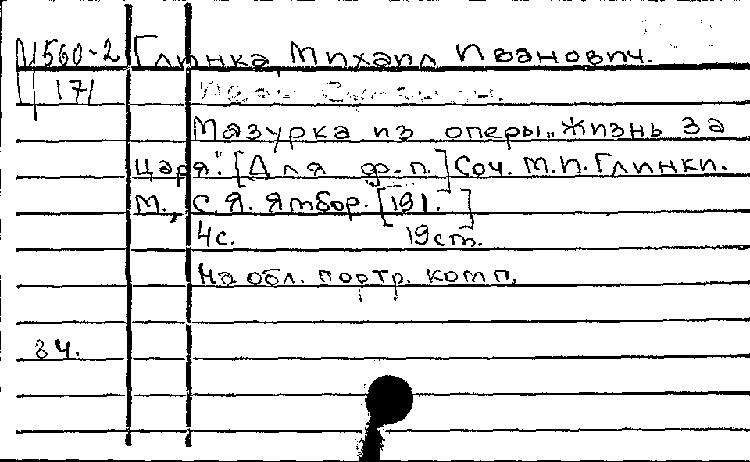 Ц 560-2 Глинка, Михаил Иванович.
171 Иван Сусанин.
Мазурка из оперы „Жизнь за
царя". [Для ф.-п.] Соч. М.И. Глинки.
М., С.Я. Ямбор. [191. ]
4 с. 19 ст.
На обл. портр. комп.
84.